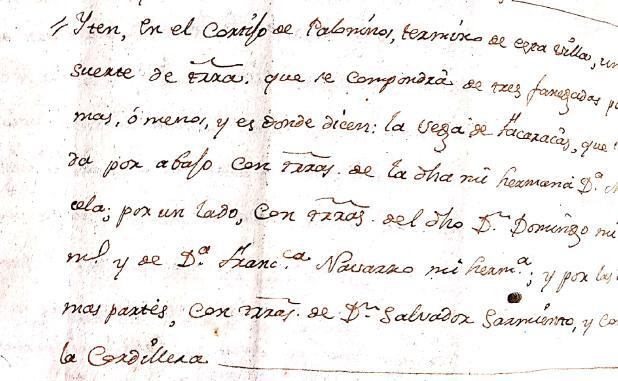 Yten, En el Cortiso de Palomiños, termino de esta Villa, un
suerte de trra. que se compondra de tres fanegadas p
mas, ó menos, y es donde dicen: la vega de Hacaracas, que
da por abaso con trras. de la dha mi hermana D.ª M
cela; por un lado, con trras. del dho D.n Domingo mi
y de D.ª Franc.ca Navarro mi herm.ª; y por las
mas partes, con trras. de D.n Salvador Sarmiento, y co
la Cordillera